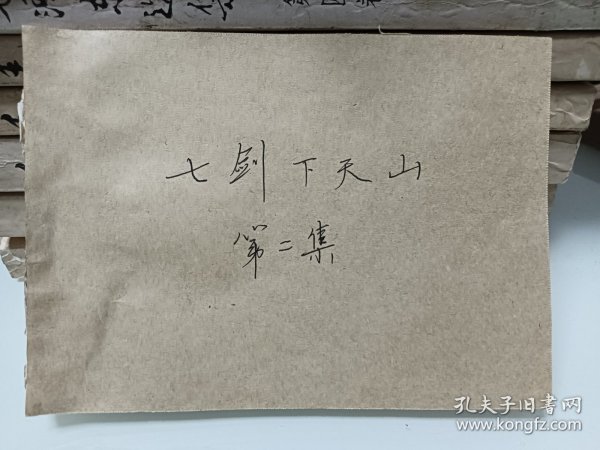 七剑下天山
第二集
孔夫子旧书网
www.kongfz.com